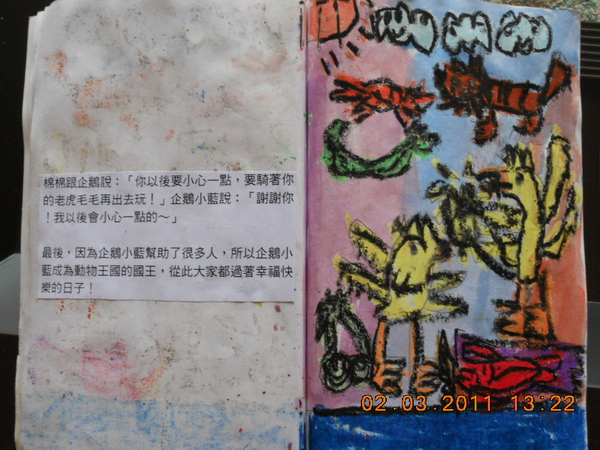 棉棉跟企鵝說：「你以後要小心一點，要騎著你
的老虎毛毛再出去玩！」企鵝小藍說：「謝謝你
！我以後會小心一點的～」
最後，因為企鵝小藍幫助了很多人，所以企鵝小
藍成為動物王國的國王，從此大家都過著幸福快
樂的日子！
02.03.2011 13:22